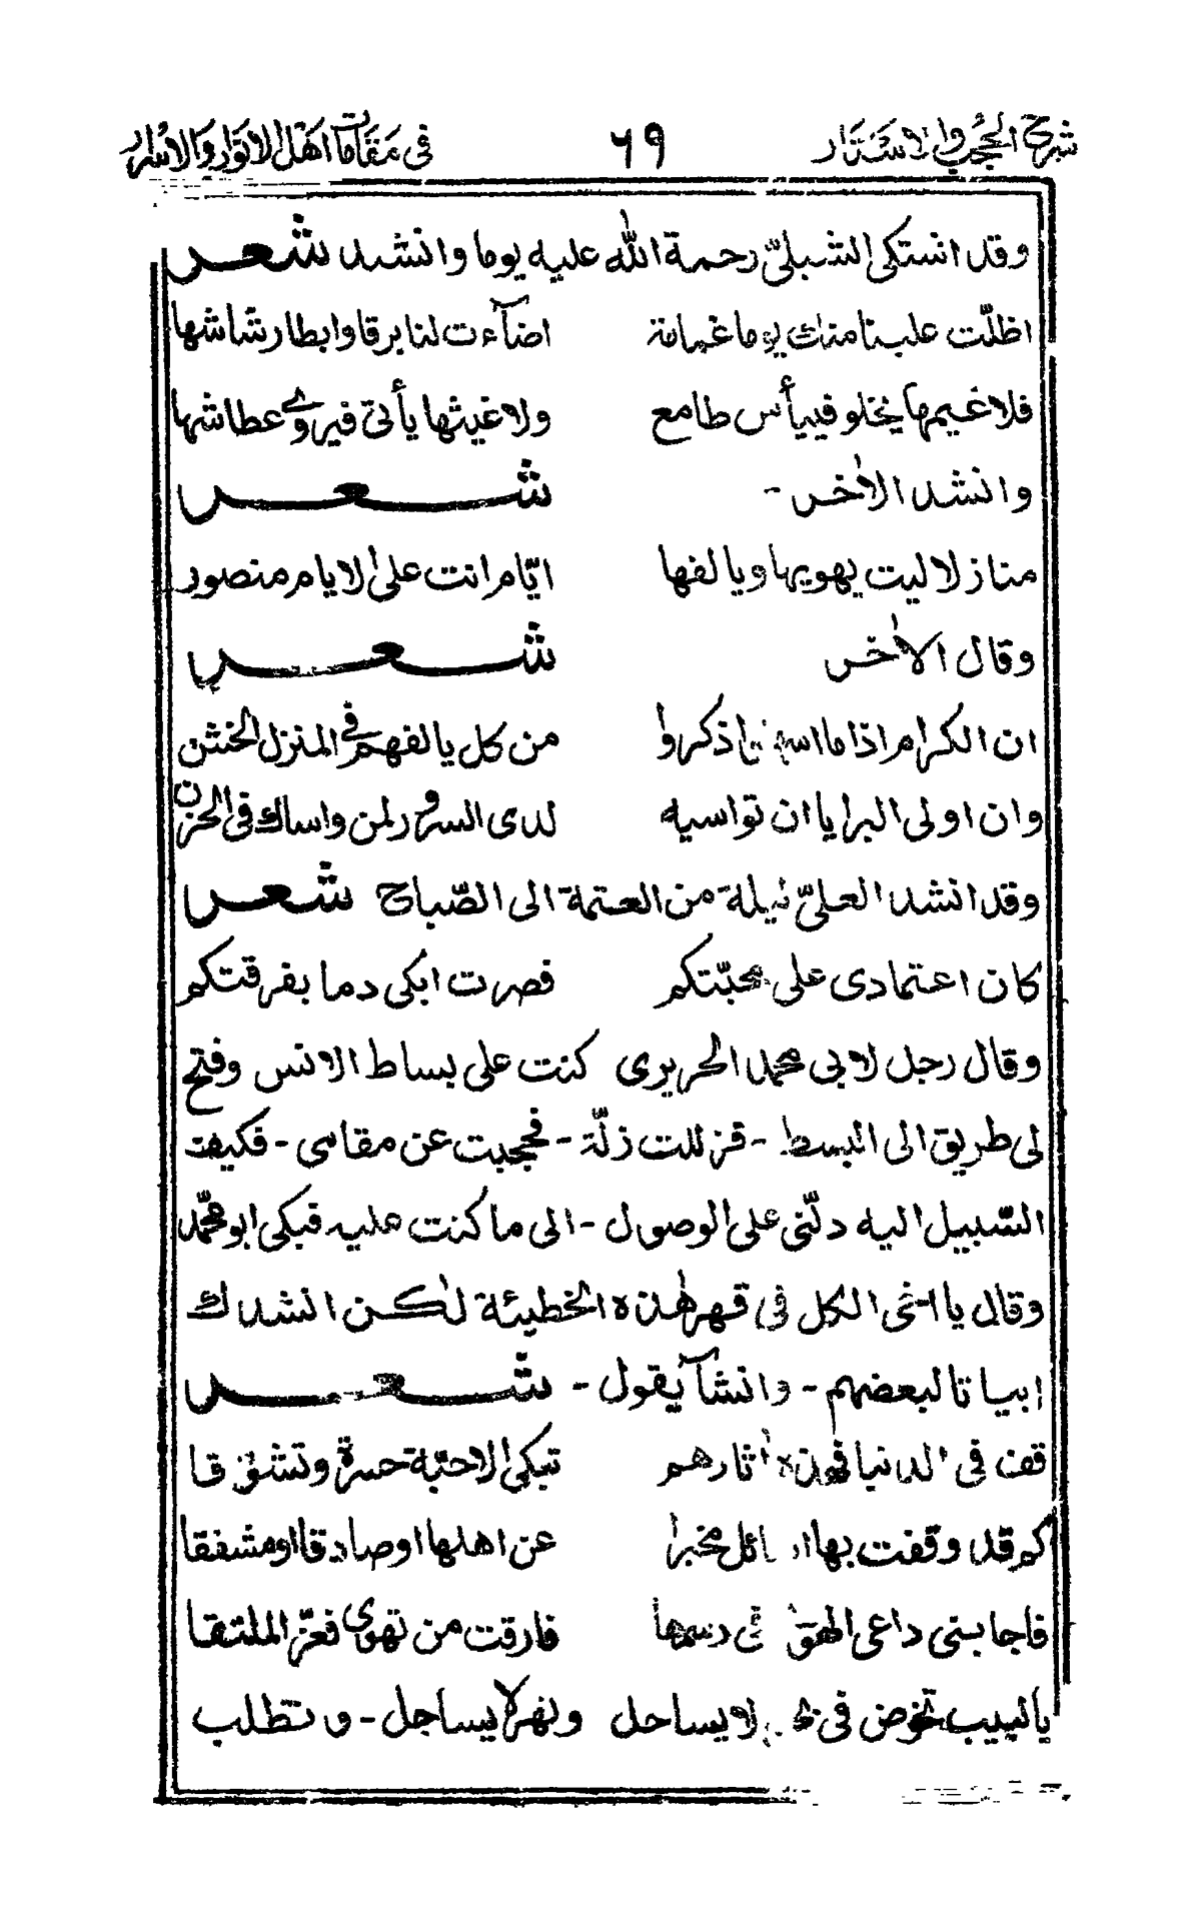 شرح الحجب والاستار ٦٩ فی مقامات اهل الانوار والاسرار
وقد استکی الشبلیّ رحمة الله علیه یوما وانشد شعر
اظلّت علینا منك یوما غمامة اضآءت لنا برقا وابطا رشاشها
فلا غیمها یخلو فییأس طامع ولا غیثها یأتی فیروی عطاشها
وانشد الاٰخر - شعر
منازلا لیت یهویها ویالفها ایّام انت علی الایام منصور
وقال الاٰخر شعر
ان الکرام اذا ما ذکروا من کل یالفهم فی المنزل الخشن
وان اولی البرایا ان تواسیه لدی السرور لمن واساك فی الحزن
وقد انشد العلیّ لیلة من العتمة الی الصّباح شعر
کان اعتمادی علی محبّتکم فصرت ابکی دما بفرقتکم
وقال رجل لابی محمد الحریری کنت علی بساط الانس وفتح
لی طریق الی البسط - فزللت زلّة - فحجبت عن مقامی - فکیف
السّبیل الیه دلّنی علی الوصول - الی ما کنت علیه فبکی ابو محمّد
وقال یا اخی الکل فی قهر هٰذه الخطیئة لٰکن انشدك
ابیاتا لبعضهم - وانشآ یقول - شعر
قف فی الدنیا فهذه اٰثارهم تبکی الاحبّة حسرة وتشوّقا
کم قد وقفت بها مخبرا عن اهلها او صادقا او مشفقا
فاجابنی داعی الهوٰی فی رسمها فارقت من تهوی فعزّ الملتقا
یا لبیب تخوض فی لا یساحل ونهر لا یساجل - و تطلب